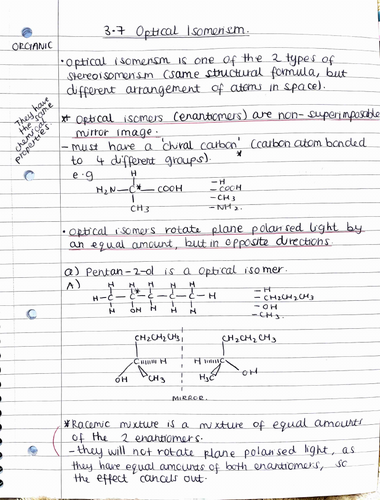 3.7 Optical Isomerism.
ORGANIC
• Optical isomerism is one of the 2 types of
stereoisomerism (same structural formula, but
different arrangement of atoms in space).
They have
the same
chemical
properties.
* Optical isomers (enantiomers) are non-superimposable
mirror image.
- must have a 'chiral carbon' (carbon atom bonded
to 4 different groups). *
e.g
H
H₂N-C*-COOH
CH₃
-H
-COOH
-CH₃
-NH₂.
• Optical isomers rotate plane polarised light by
an equal amount, but in opposite directions
Q) Pentan-2-ol is a optical isomer.
A)
H H H H H
H-C-C*-C-C-C-H
H OH H H H
-H
-CH₂CH₂CH₃
-OH
-CH₃.
CH₂CH₂CH₃ CH₂CH₂CH₃
C H H C
OH CH₃ H₃C OH
MIRROR.
* Racemic mixture is a mixture of equal amounts
of the 2 enantiomers.
- they will not rotate plane polarised light, as
they have equal amounts of both enantiomers, so
the effect cancels out.